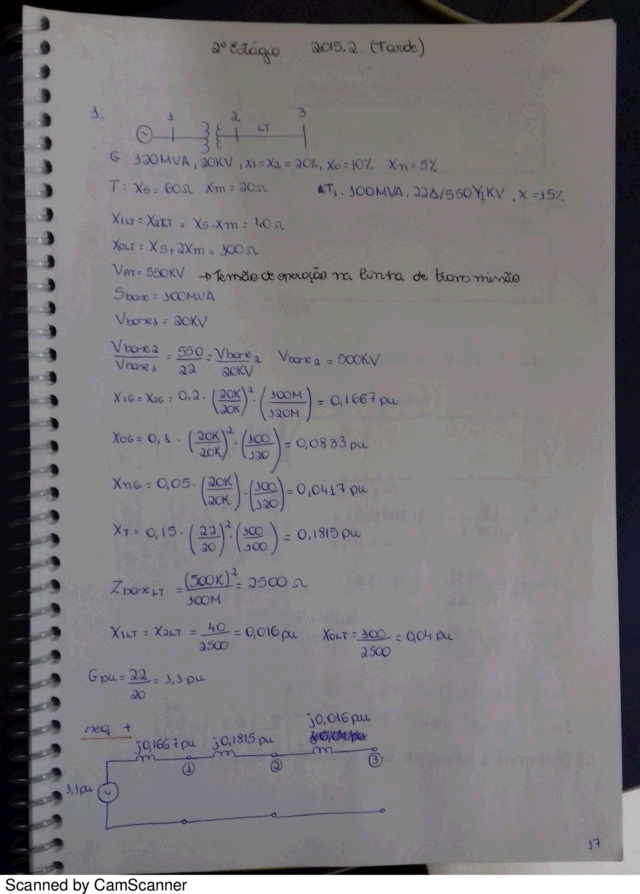 2º Estágio 2015.2. (Tarde)
1.
1 2 LT 3
G 120MVA, 20KV, x1=x2=20%, x0=10% xn=5%
T: Xs=60Ω Xm=20Ω T1: 100MVA, 22Δ/550Y KV, X=15%
X1LT = X2LT = Xs-Xm = 40Ω
X0LT = Xs+2Xm = 100Ω
VAT = 550KV → Tensão de operação na linha de transmissão
Sbase = 100MVA
Vbase1 = 20KV
Vbase2/Vbase1 = 550/22 = Vbase2/20KV Vbase2 = 500KV
X1G = X2G = 0,2 · (20K/20K)² · (100M/120M) = 0,1667 pu
X0G = 0,1 · (20K/20K)² · (100/120) = 0,0833 pu
XnG = 0,05 · (20K/20K) · (100/120) = 0,0417 pu
XT = 0,15 · (22/20)² · (100/100) = 0,1815 pu
ZbaseLT = (500K)²/100M = 2500 Ω
X1LT = X2LT = 40/2500 = 0,016 pu X0LT = 100/2500 = 0,04 pu
Gpu = 22/20 = 1,1 pu
seq +
j0,1667 pu j0,1815 pu j0,016 pu
1 2 3
1,1 pu
17
Scanned by CamScanner